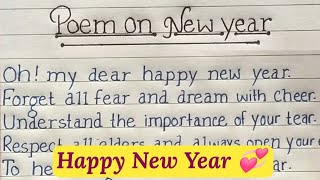 Poem on New year
Oh! my dear happy new year.
Forget all fear and dream with cheer.
Understand the importance of your tear.
Respect all elders and always open your
To he
Happy New Year 💕